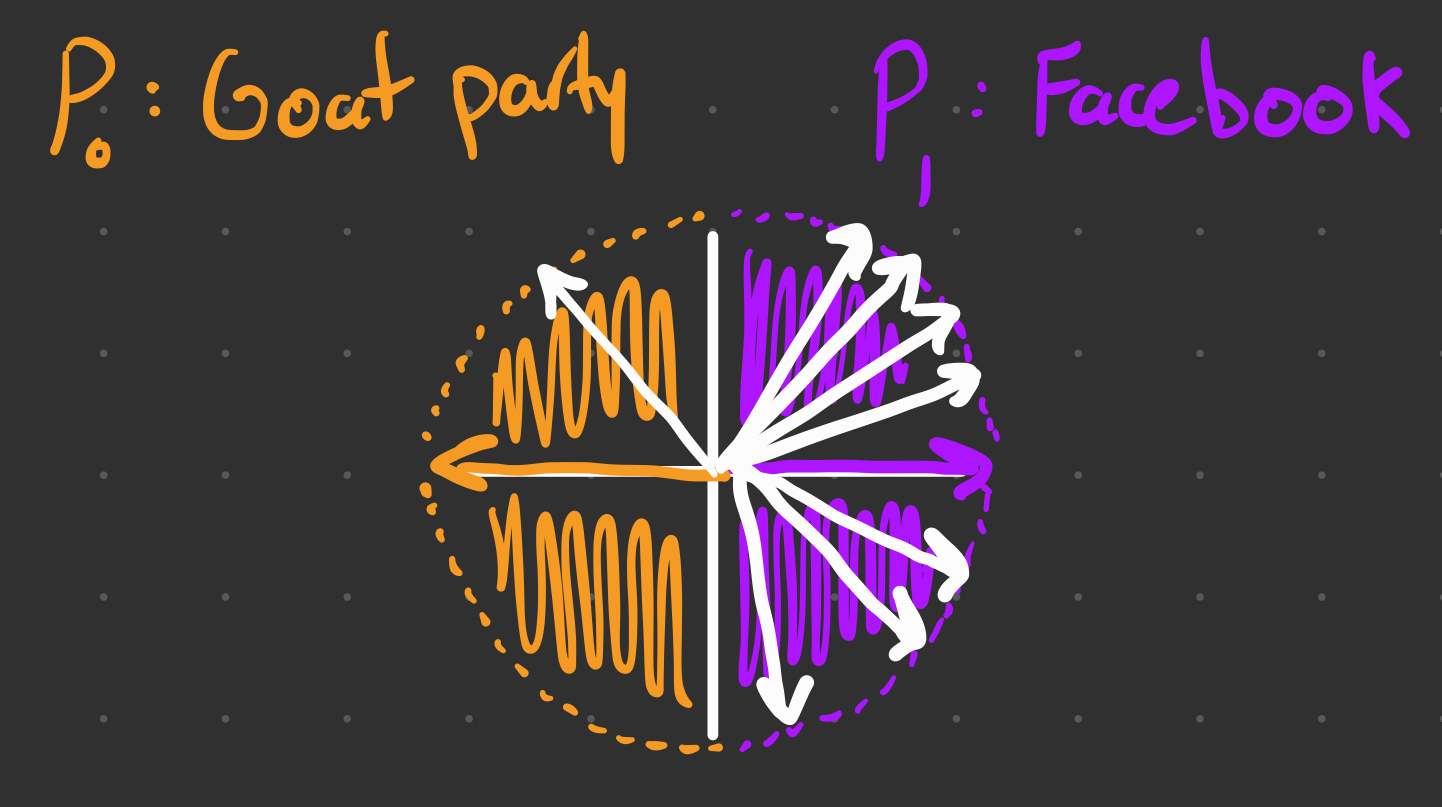 P₀ : Goat party
P₁ : Facebook